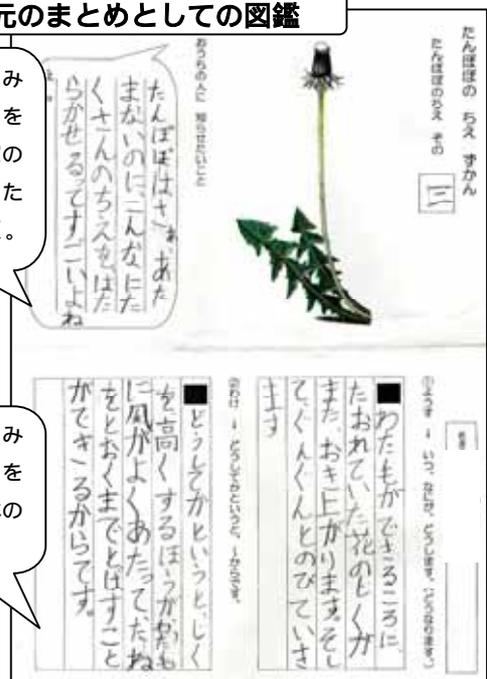 元のまとめとしての図鑑
たんぽぽの ちえ ずかん
たんぽぽのちえ その
三
おうちの人に 知らせたいこと
たんぽぽはさあ、あた
まないのに、こんなにた
くさんのちえを、はた
らかせるってすごいよね
え。
み
を
の
た
。
み
を
の
①ようす いつ、なにが、どうします。(どうなります。)
わたもができるころに、
たおれていた花のじくが
また、おき上がります。そし
て、ぐんぐんとのびていき
ます
②わけ どうしてかというと、〜からです。
どうしてかというと、じく
を高くするほうがわたも
に風がよくあたって、たね
をとおくまでとばすこと
ができるからです。